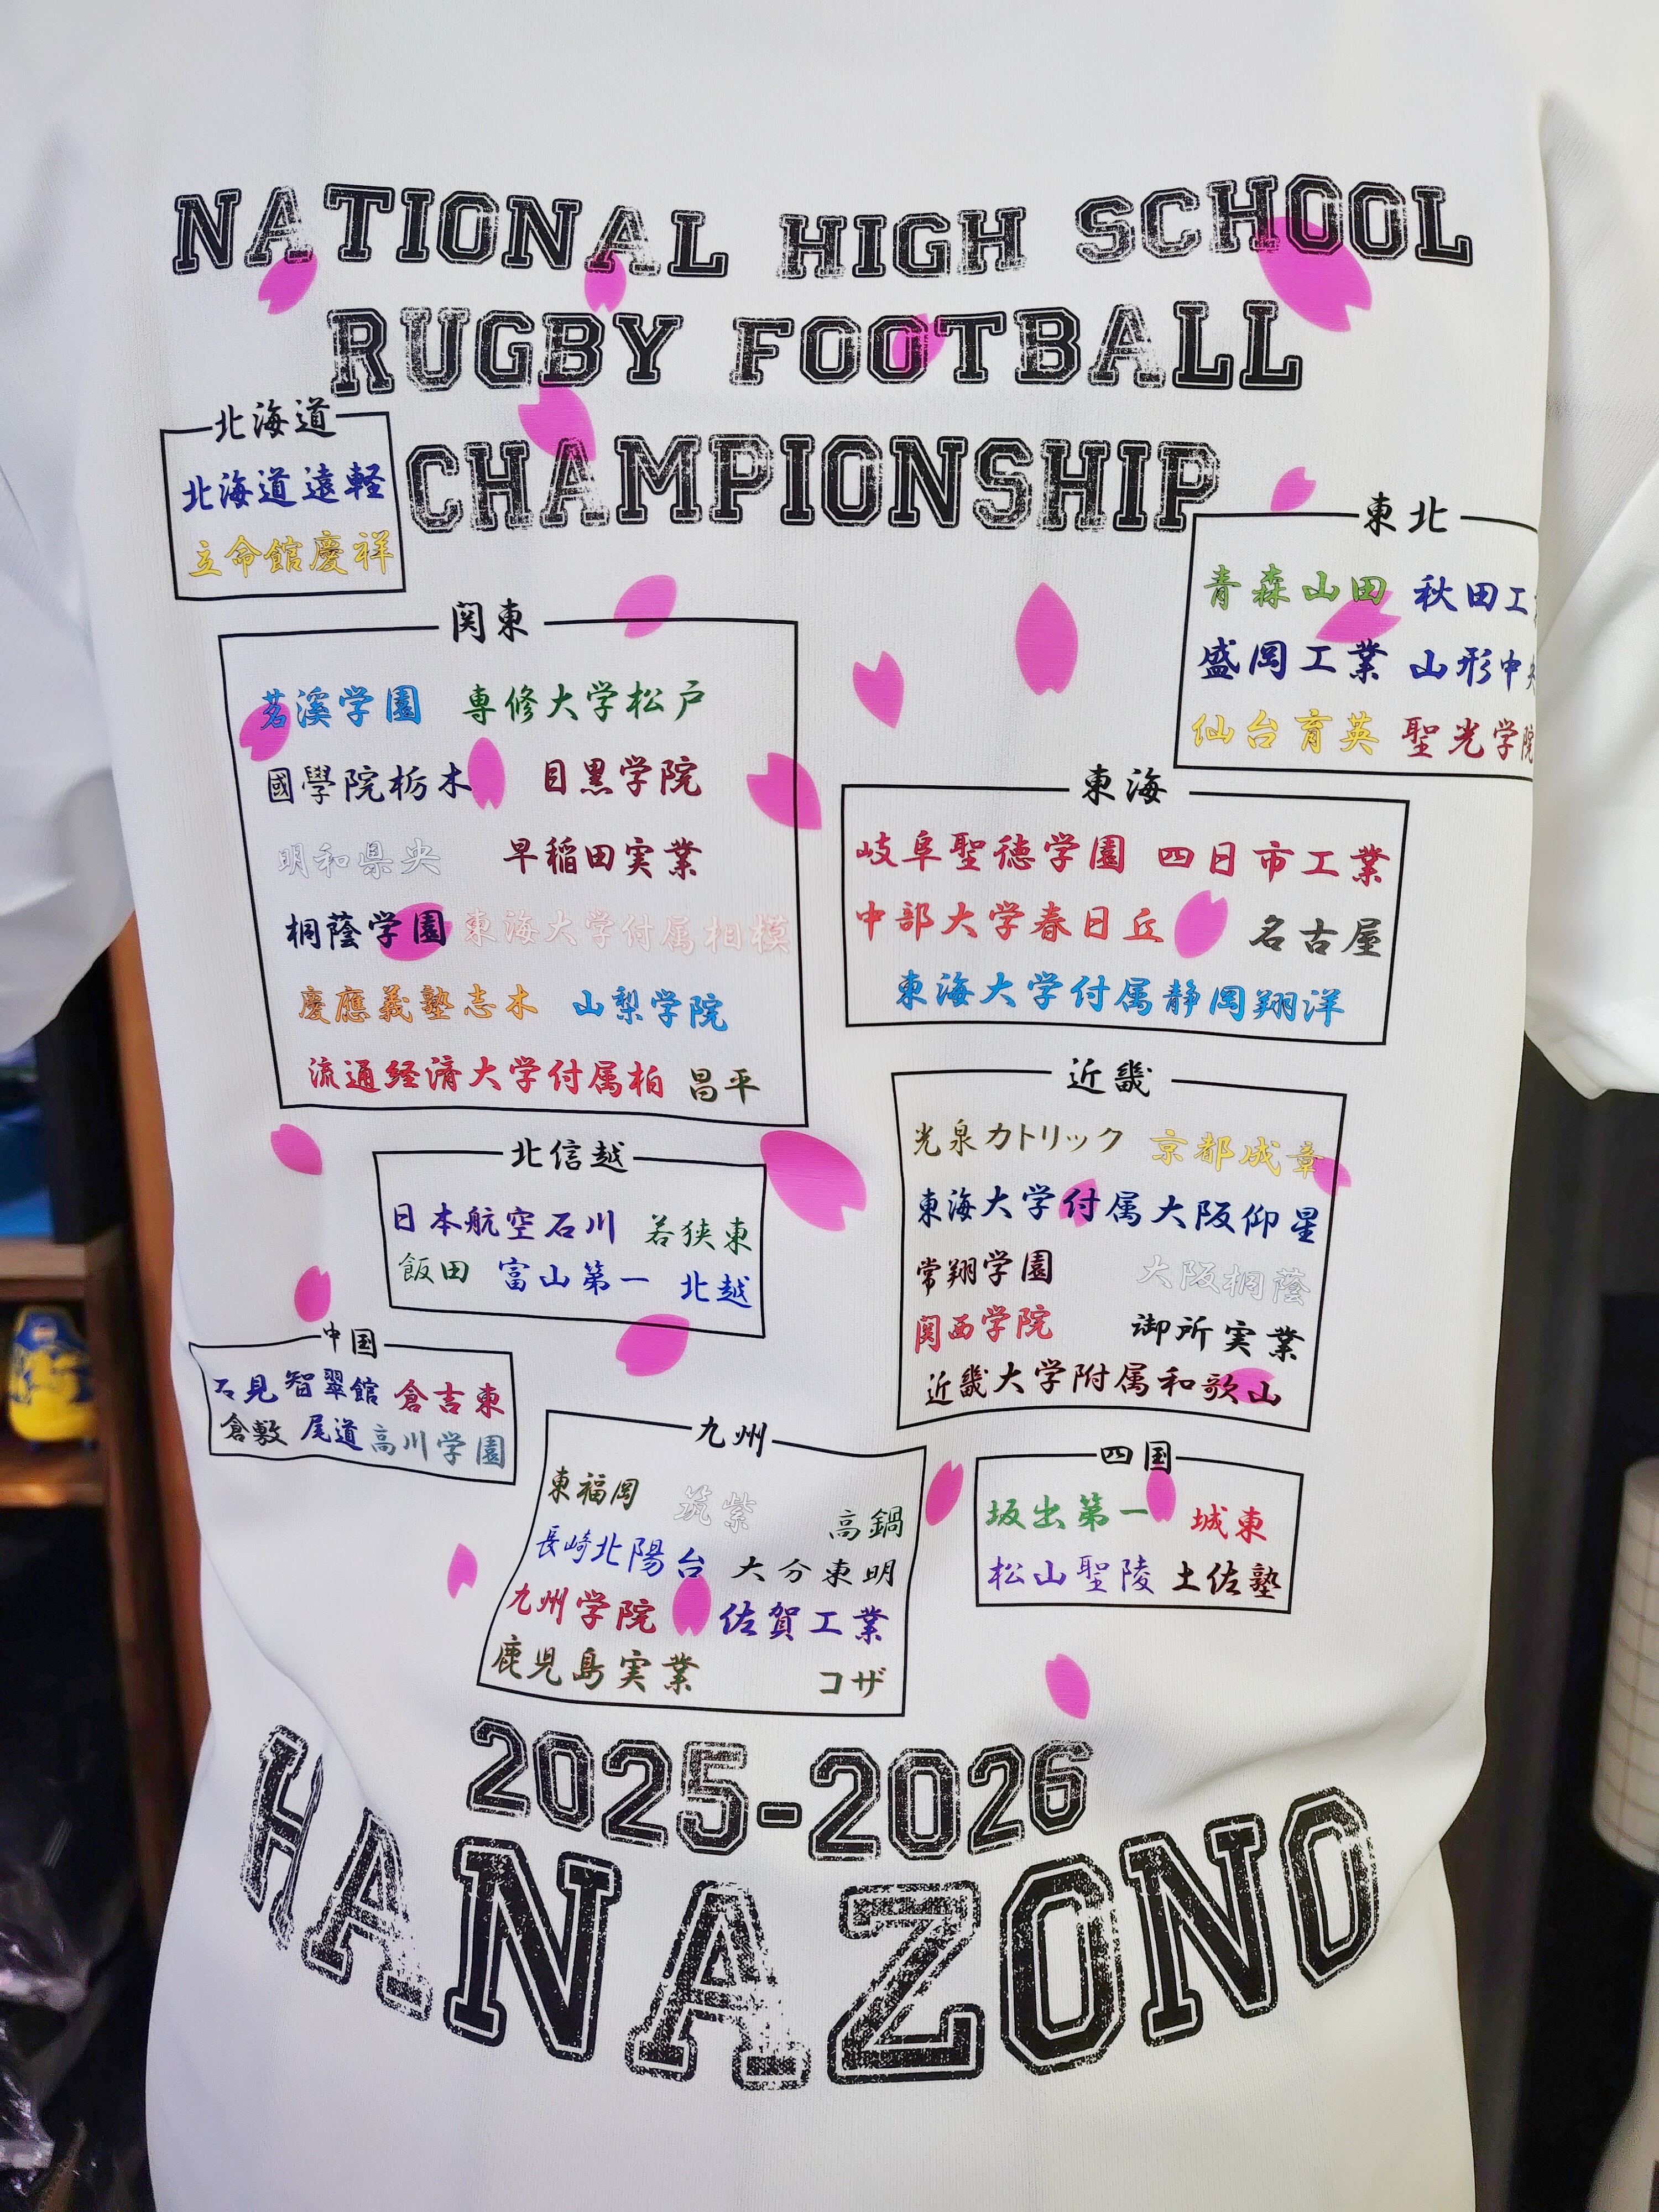 NATIONAL HIGH SCHOOL
RUGBY FOOTBALL
CHAMPIONSHIP
北海道
北海道遠軽
立命館慶祥
東北
青森山田 秋田工
盛岡工業 山形中央
仙台育英 聖光学院
関東
茗溪学園 専修大学松戸
國學院栃木 目黒学院
明和県央 早稲田実業
桐蔭学園 東海大学付属相模
慶應義塾志木 山梨学院
流通経済大学付属柏 昌平
東海
岐阜聖徳学園 四日市工業
中部大学春日丘 名古屋
東海大学付属静岡翔洋
北信越
日本航空石川 若狭東
飯田 富山第一 北越
近畿
光泉カトリック 京都成章
東海大学付属大阪仰星
常翔学園 大阪桐蔭
関西学院 御所実業
近畿大学附属和歌山
中国
石見智翠館 倉吉東
倉敷 尾道 高川学園
九州
東福岡 筑紫 高鍋
長崎北陽台 大分東明
九州学院 佐賀工業
鹿児島実業 コザ
四国
坂出第一 城東
松山聖陵 土佐塾
2025-2026
HANAZONO